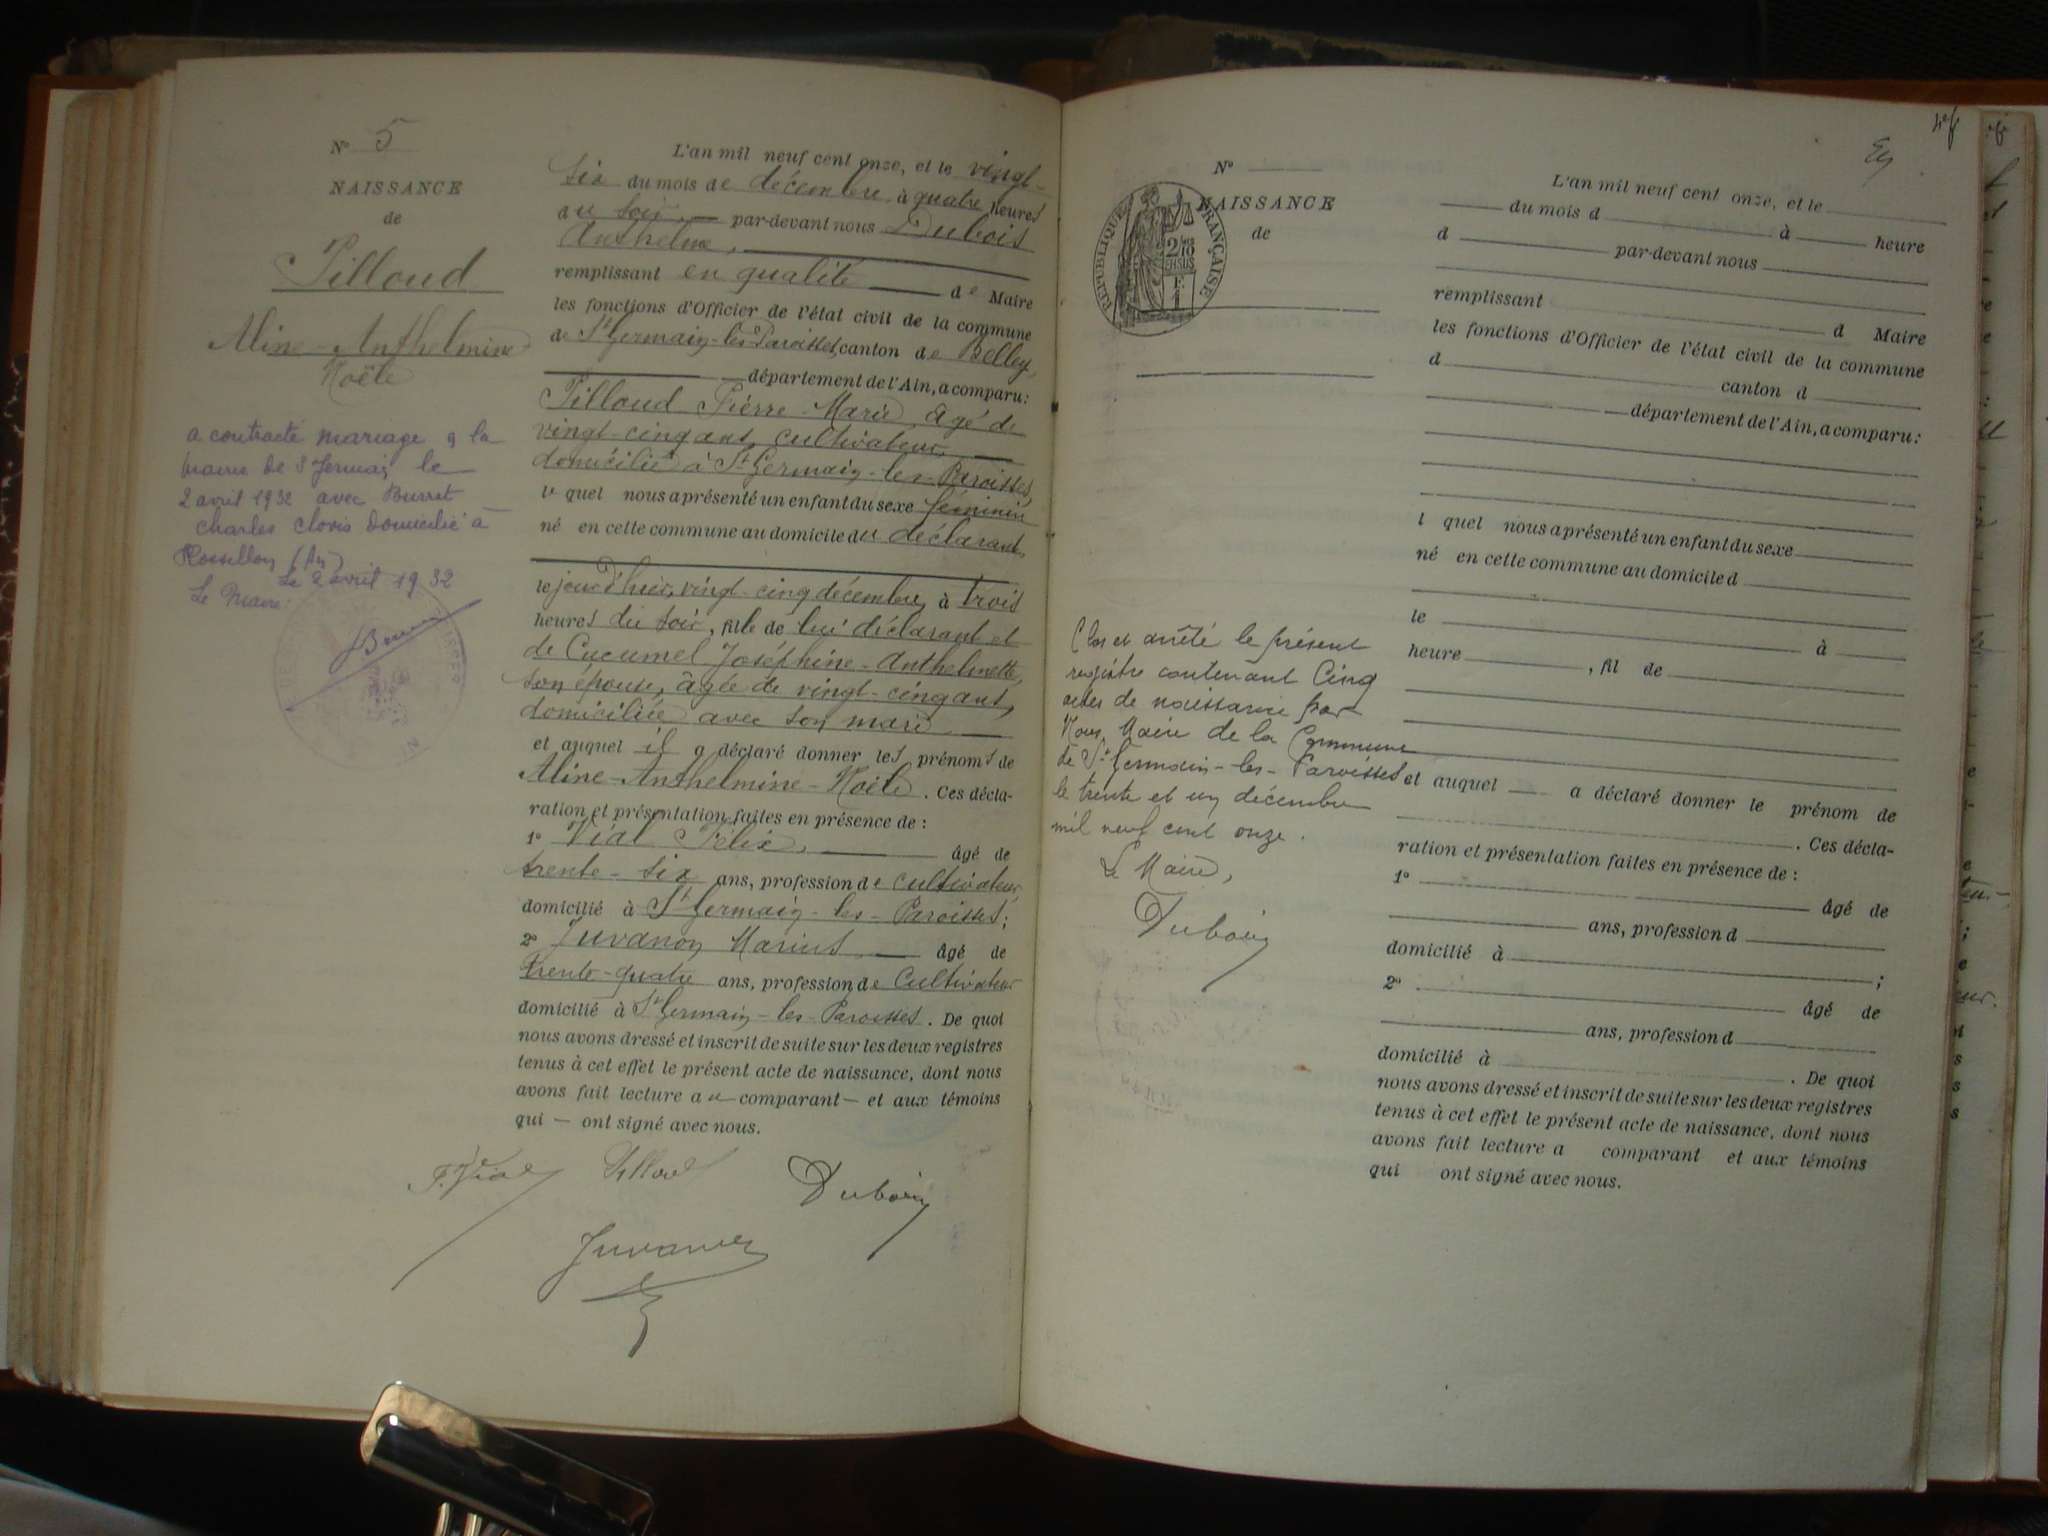 N° 5
NAISSANCE
de
Pilloud
Aline-Anthelmine
Noële
a contracté mariage à la
mairie de St Germain le
2 avril 1932 avec Burret
Charles Clovis domicilié à
Rossillon (Ain)
Le 2 avril 1932
Le Maire:
L'an mil neuf cent onze, et le vingt-
six du mois de décembre à quatre heures
du soir par-devant nous Dubois
Anthelme,
remplissant en qualité de Maire
les fonctions d'Officier de l'état civil de la commune
de St Germain-les-Paroisses, canton de Belley,
département de l'Ain, a comparu:
Pilloud Pierre-Marie, âgé de
vingt-cinq ans, cultivateur,
domicilié à St Germain-les-Paroisses,
lequel nous a présenté un enfant du sexe féminin
né en cette commune au domicile du déclarant,
le jour d'hier, vingt-cinq décembre, à trois
heures du soir, fille de lui déclarant et
de Cucumel Joséphine-Anthelmette,
son épouse, âgée de vingt-cinq ans,
domiciliée avec son mari
et auquel il a déclaré donner les prénoms de
Aline-Anthelmine-Noële. Ces décla-
ration et présentation faites en présence de :
1° Vial Félix, âgé de
trente-six ans, profession de cultivateur
domicilié à St Germain-les-Paroisses;
2° Juvanon Marius âgé de
trente-quatre ans, profession de cultivateur
domicilié à St Germain-les-Paroisses. De quoi
nous avons dressé et inscrit de suite sur les deux registres
tenus à cet effet le présent acte de naissance, dont nous
avons fait lecture au comparant et aux témoins
qui ont signé avec nous.
F. Vial Pilloud Dubois
Juvanon
N°
NAISSANCE
de
RÉPUBLIQUE FRANÇAISE
Clos et arrêté le présent
registre contenant Cinq
actes de naissance par
Nous, Maire de la Commune
de St Germain-les-Paroisses
le trente et un décembre
mil neuf cent onze.
Le Maire,
Dubois
L'an mil neuf cent onze, et le
du mois d à heure
d par-devant nous
remplissant d Maire
les fonctions d'Officier de l'état civil de la commune
d canton d
département de l'Ain, a comparu:
l quel nous a présenté un enfant du sexe
né en cette commune au domicile d
le à
heure , fil de
et auquel a déclaré donner le prénom de
. Ces décla-
ration et présentation faites en présence de :
1° âgé de
ans, profession d
domicilié à ;
2° âgé de
ans, profession d
domicilié à . De quoi
nous avons dressé et inscrit de suite sur les deux registres
tenus à cet effet le présent acte de naissance, dont nous
avons fait lecture a comparant et aux témoins
qui ont signé avec nous.